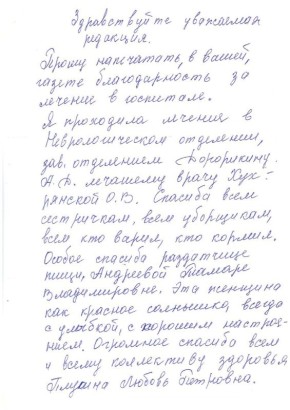 Здравствуйте уважаемая
редакция.
Прошу напечатать, в вашей,
газете благодарность за
лечение в госпитале.
Я проходила лчения в
Неврологическом отделении,
зав. отделением
А. Д. лечашему врачу Хух-
рянской О.В. Спасиба всем
сестричкам, всем уборщикам,
всем кто варил, кто кормил.
Особое спасиба раздатчице
пищи, Андреевой Тамаре
Владимировне. Эта женщина
как красное солнышко, всегда
с улыбкой, с хорошим настрое-
нием. Огромное спасиба всем
и всему коллективу здоровья
Любовь Петровна.